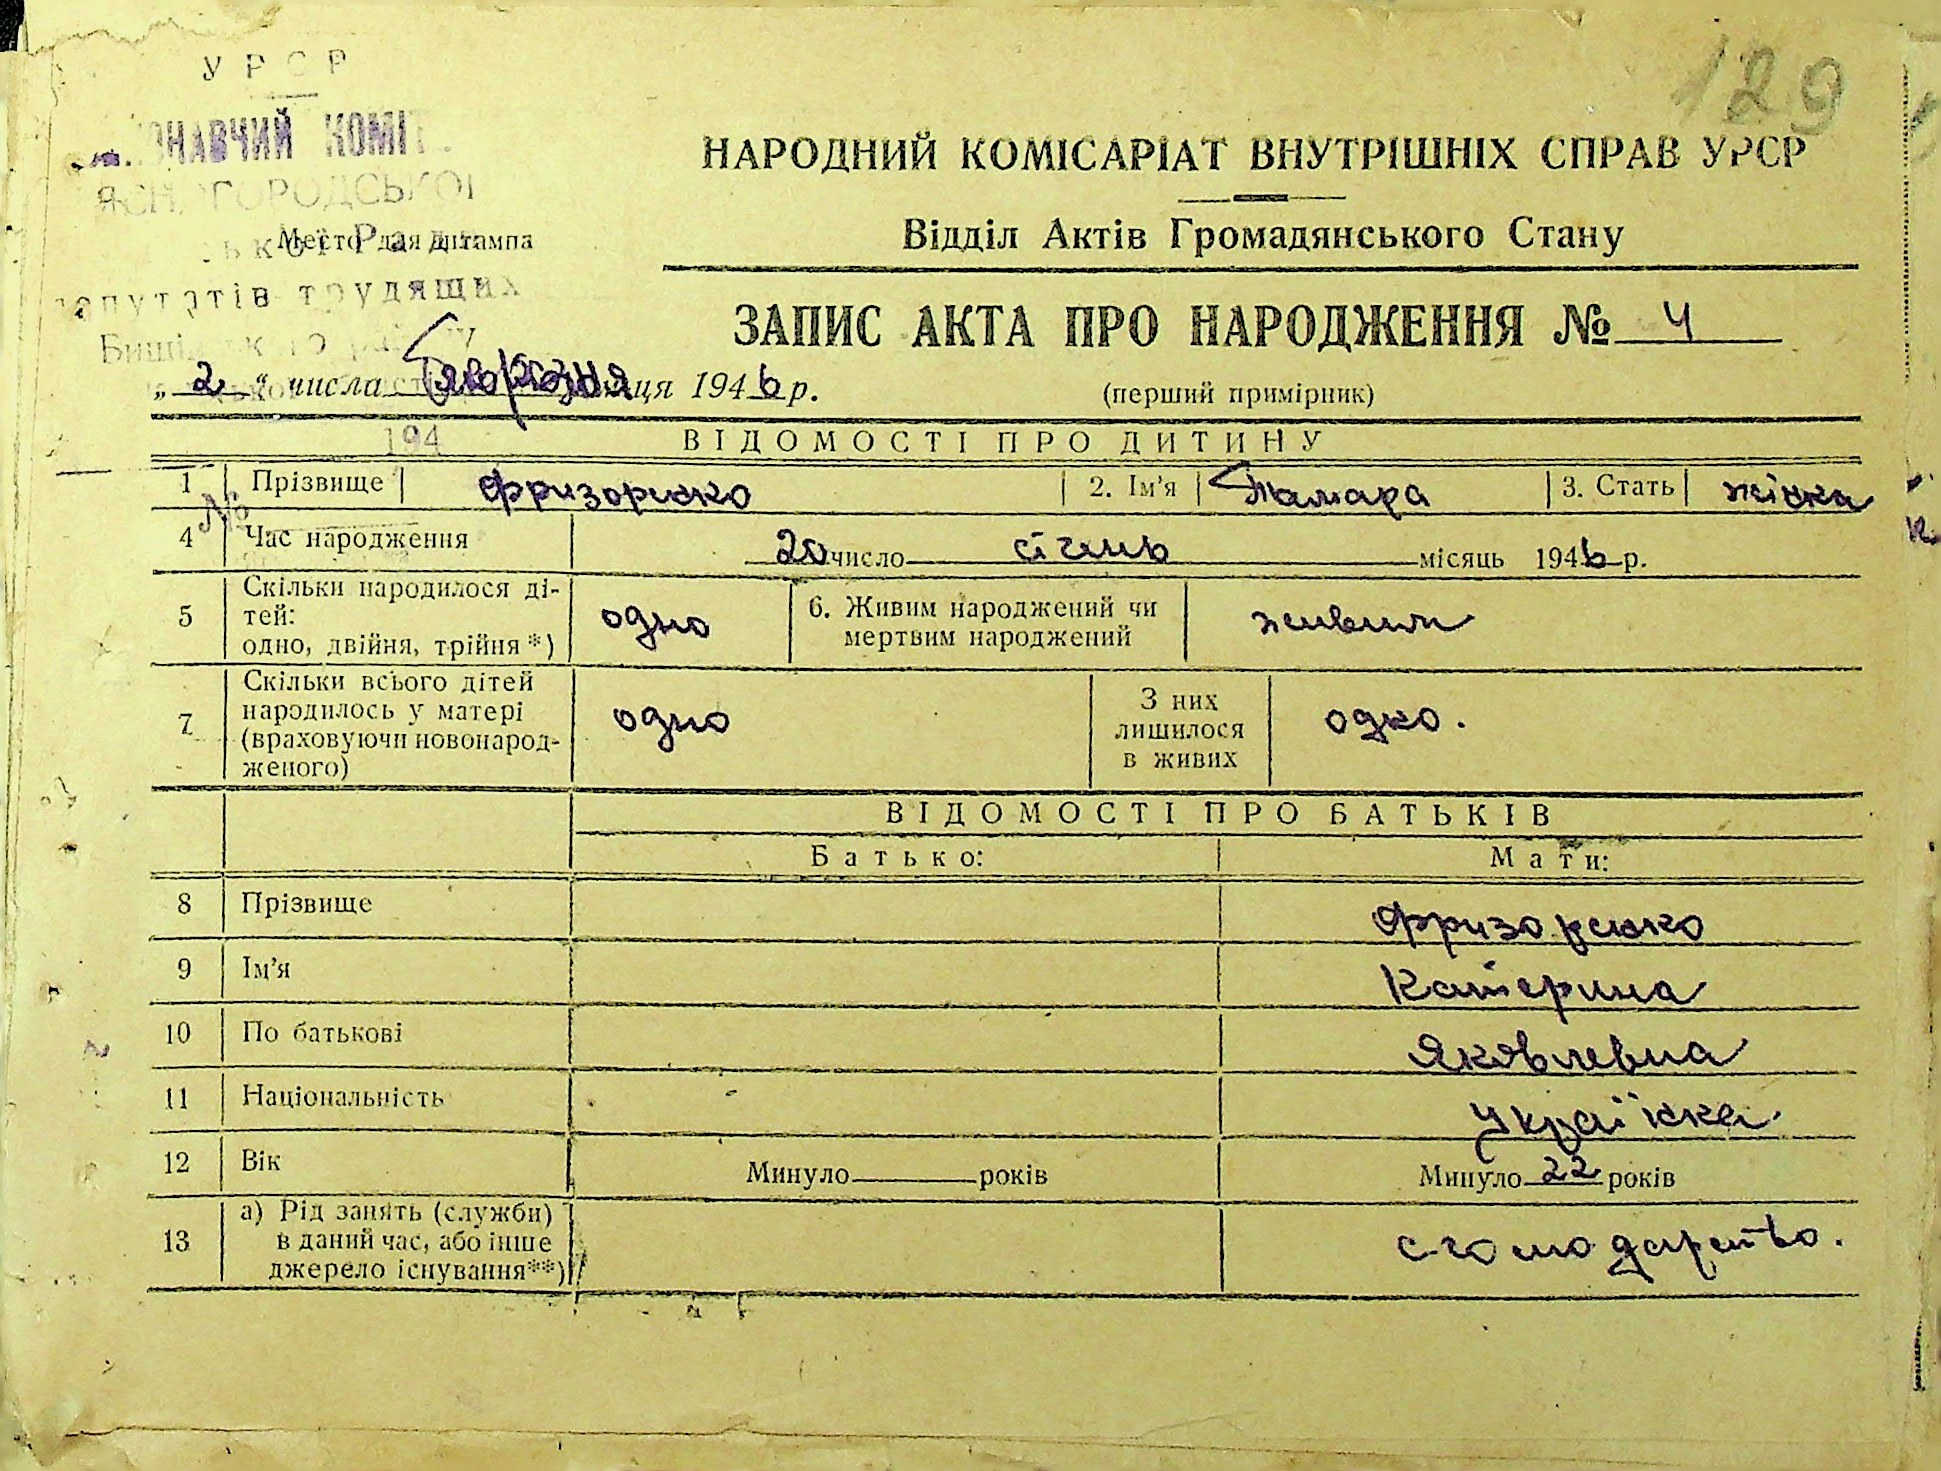 129
УРСР
НАРОДНИЙ КОМІСАРІАТ ВНУТРІШНІХ СПРАВ УРСР
Відділ Актів Громадянського Стану
Место для штампа
трудящих
ЗАПИС АКТА ПРО НАРОДЖЕННЯ № 4
„2“ числа березня місяця 1946 р.
(перший примірник)
194
ВІДОМОСТІ ПРО ДИТИНУ
1 Прізвище Фризоренко 2. Ім'я Тамара 3. Стать жінка
№
4 Час народження 20 число січень місяць 1946 р.
5 Скільки народилося ді-
тей:
одно, двійня, трійня *) одно 6. Живим народжений чи
мертвим народжений живим
7 Скільки всього дітей
народилось у матері
(враховуючи новонарод-
женого) одно З них
лишилося
в живих одно.
ВІДОМОСТІ ПРО БАТЬКІВ
Батько: Мати:
8 Прізвище Фризоренко
9 Ім'я Катерина
10 По батькові Яковлевна
11 Національність українка
12 Вік Минуло років Минуло 22 років
13 а) Рід занять (служби)
в даний час, або інше
джерело існування**)